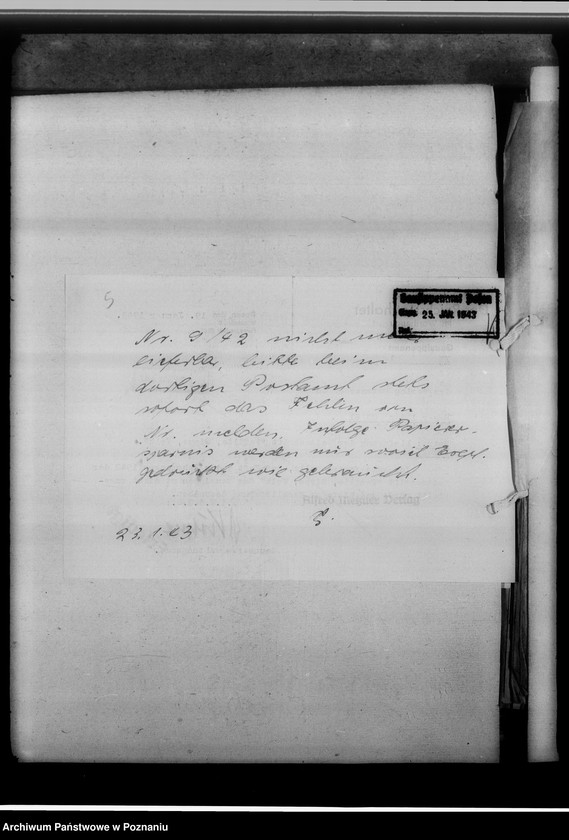 Gausippenamt Posen
Eing. 25. JAN. 1943
Nr. 9/42 nicht mehr
lieferbar, bitte beim
dortigen Postamt stets
sofort das Fehlen von
Nr. melden. Infolge Papierer-
sparnis werden nur soviel Expl.
gedruckt wie gebraucht.
Alfred Metzner Verlag
23.1.43
Archiwum Państwowe w Poznaniu